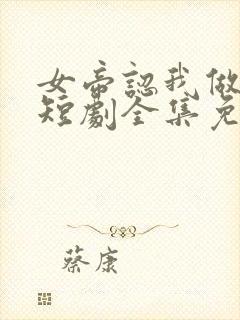 女帝認我做
短劇全集免
蔡康